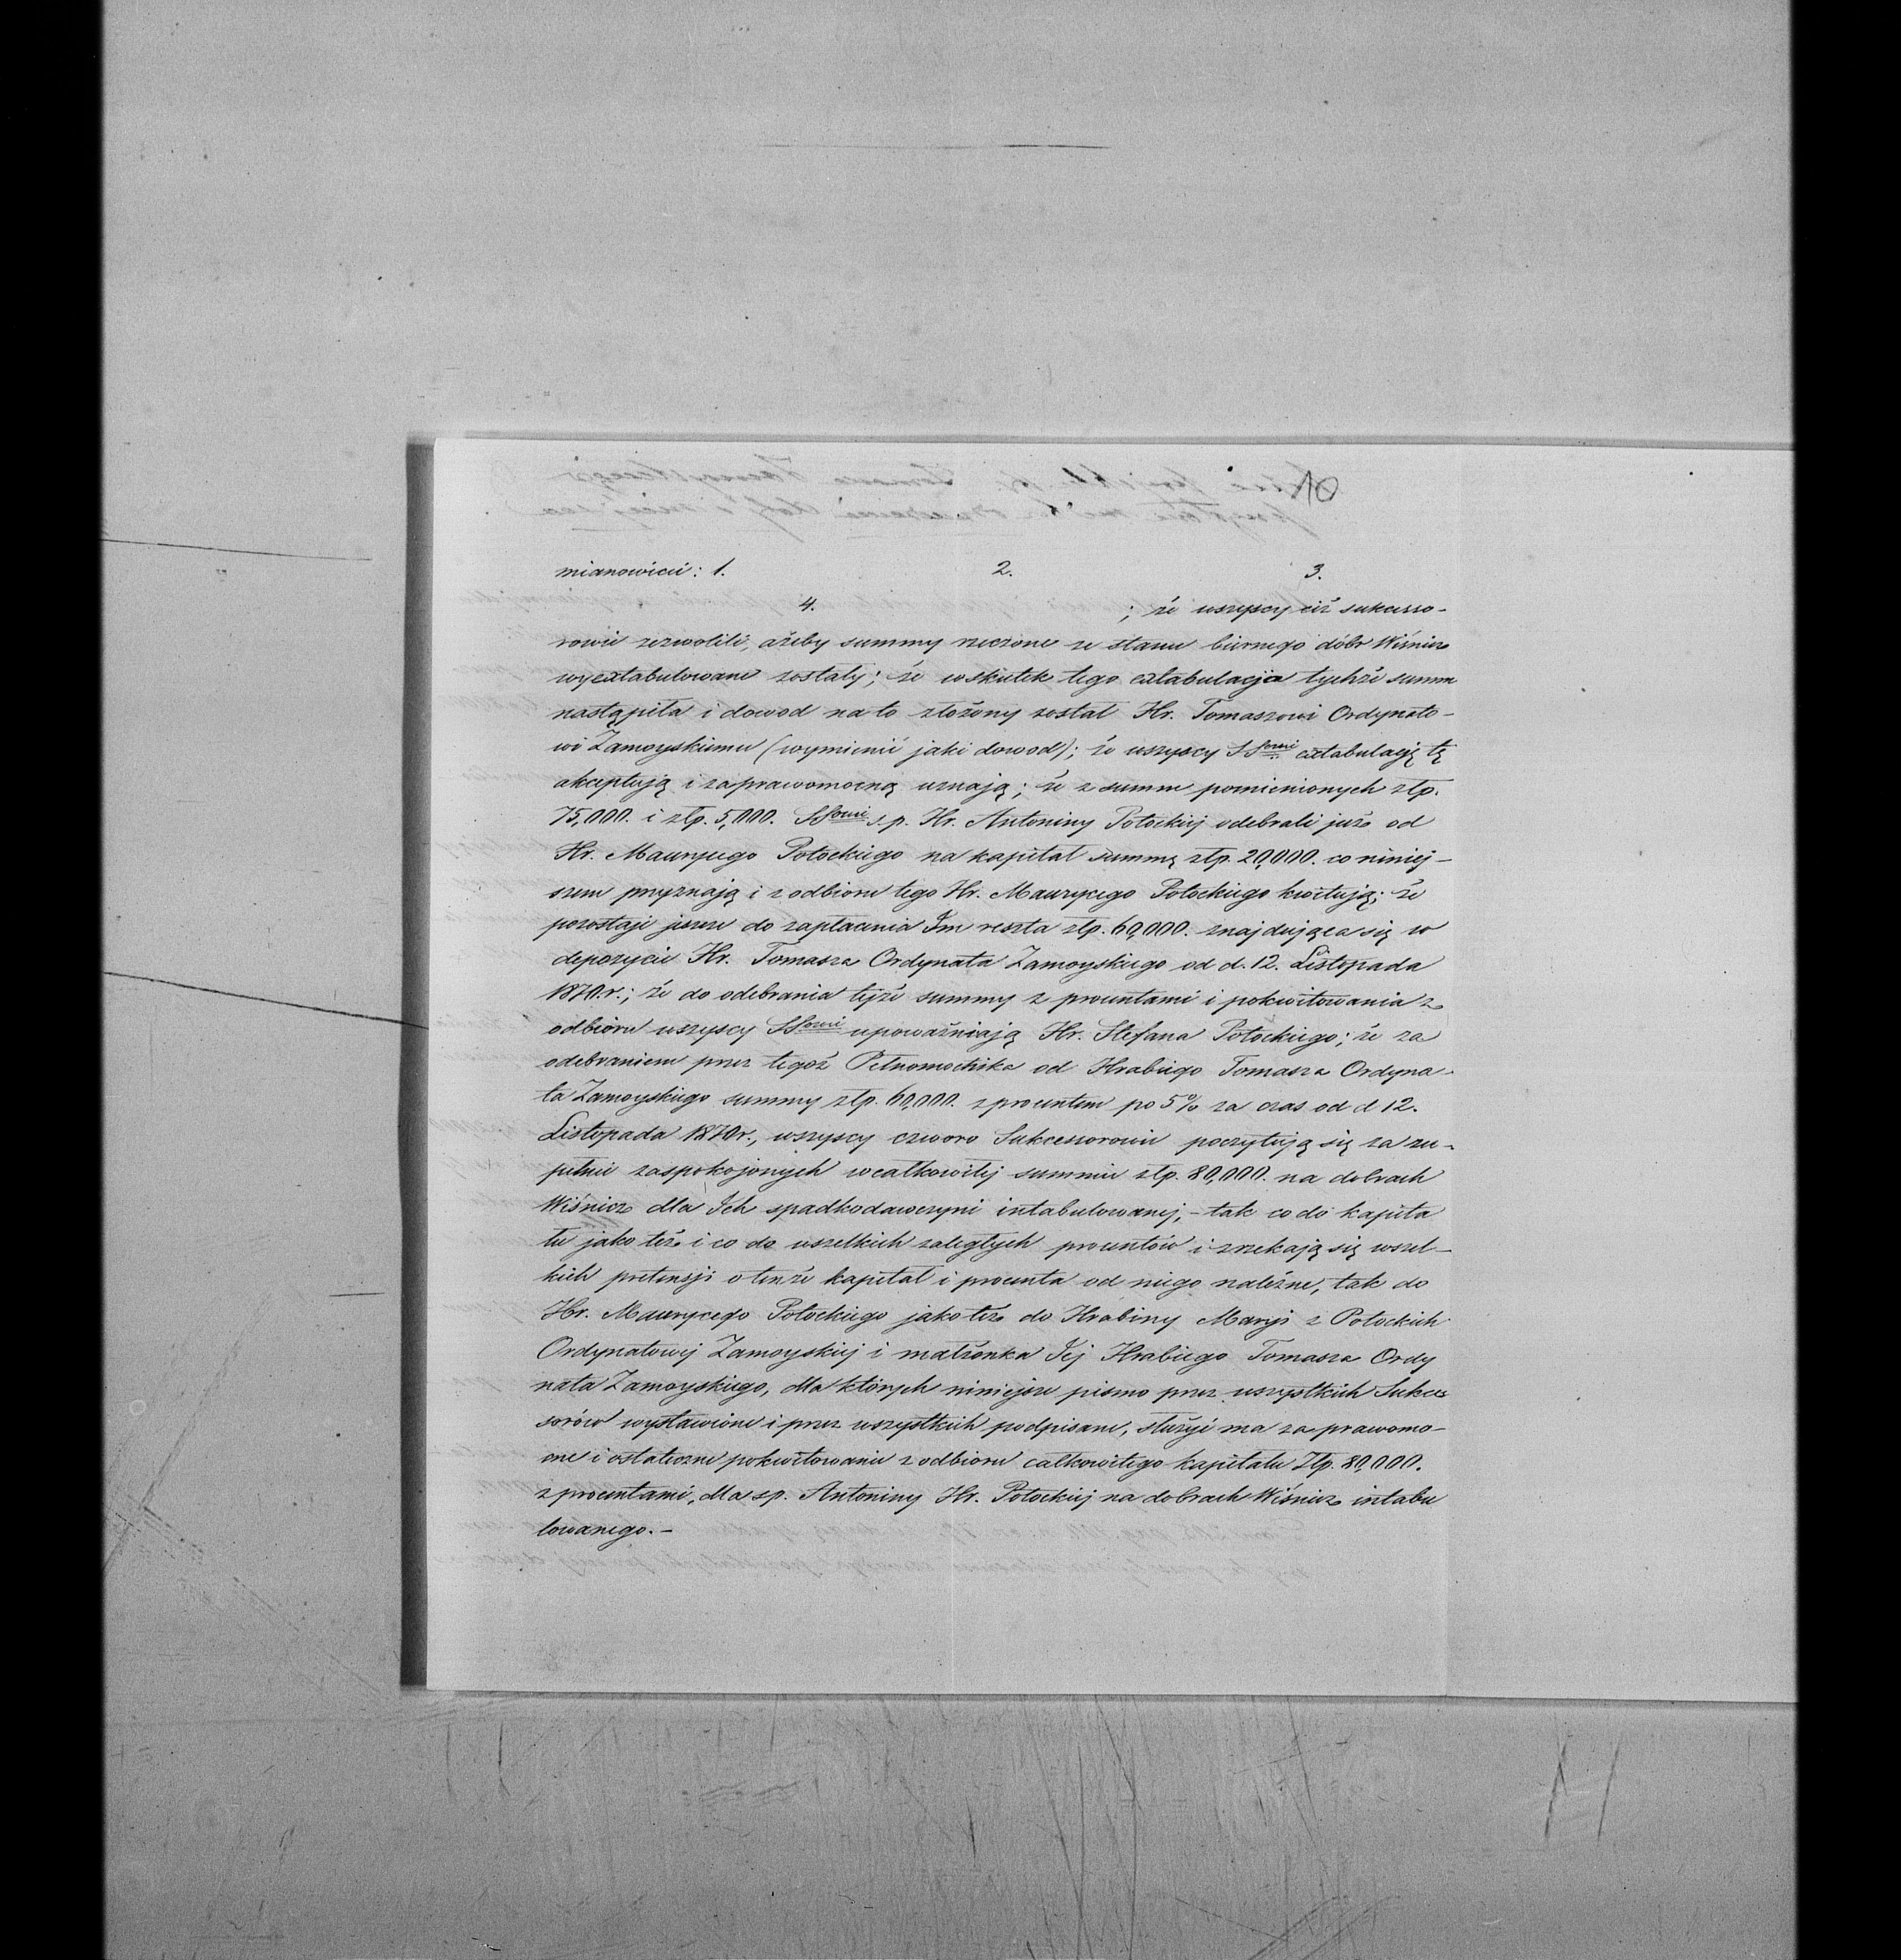 10
mianowicie: 1. 2. 3.
4. ; że wszyscy ciż sukcesso-
rowie zezwolili, ażeby summy rzeczone ze stanu biernego dóbr Wiśnicz
wyextabulowane zostały; że wskutek tego extabulacja tychże summ
nastąpiła i dowod na to złożony został Hr. Tomaszowi Ordynato-
wi Zamoyskiemu (wymienić jaki dowod); że wszyscy SSowie extabulację tę
akceptują i za prawomocną uznają; że z summ pomienionych złp.
75,000. i złp. 5,000. SSowie s.p. Hr. Antoniny Potockiej odebrali już od
Hr. Maurycego Potockiego na kapitał summę złp. 20,000. co niniej-
szem przyznają i z odbioru tego Hr. Maurycego Potockiego kwitują; że
pozostaje jeszcze do zapłacenia Im reszta złp. 60,000. znajdująca się w
depozycie Hr. Tomasza Ordynata Zamoyskiego od d. 12. Listopada
1870.r.; że do odebrania tejże summy z procentami i pokwitowania z
odbioru wszyscy SSowie upoważniają Hr. Stefana Potockiego; że za
odebraniem przez tegoż Pełnomocnika od Hrabiego Tomasza Ordyna-
ta Zamoyskiego summy złp. 60,000. z procentem po 5% za czas od d 12.
Listopada 1870r., wszyscy czworo Sukcessorowie poczytują się za zu-
pełnie zaspokojonych w całkowitej summie złp. 80,000. na dobrach
Wiśnicz dla Ich spadkodawczyni intabulowanej, - tak co do kapita
łu jako też i co do wszelkich zaległych procentów i zrzekają się wszel-
kich pretensji o tenże kapitał i procenta od niego należne, tak do
Hr. Maurycego Potockiego jako też do Hrabiny Maryi z Potockich
Ordynatowej Zamoyskiej i małżonka Jej Hrabiego Tomasza Ordy
nata Zamoyskiego, dla których niniejsze pismo przez wszystkich Sukces
sorów wystawione i przez wszystkich podpisane, służyć ma za prawomo-
cne i ostateczne pokwitowanie z odbioru całkowitego kapitału Złp. 80,000.
z procentami, dla sp. Antoniny Hr. Potockiej na dobrach Wiśnicz intabu
lowanego. -